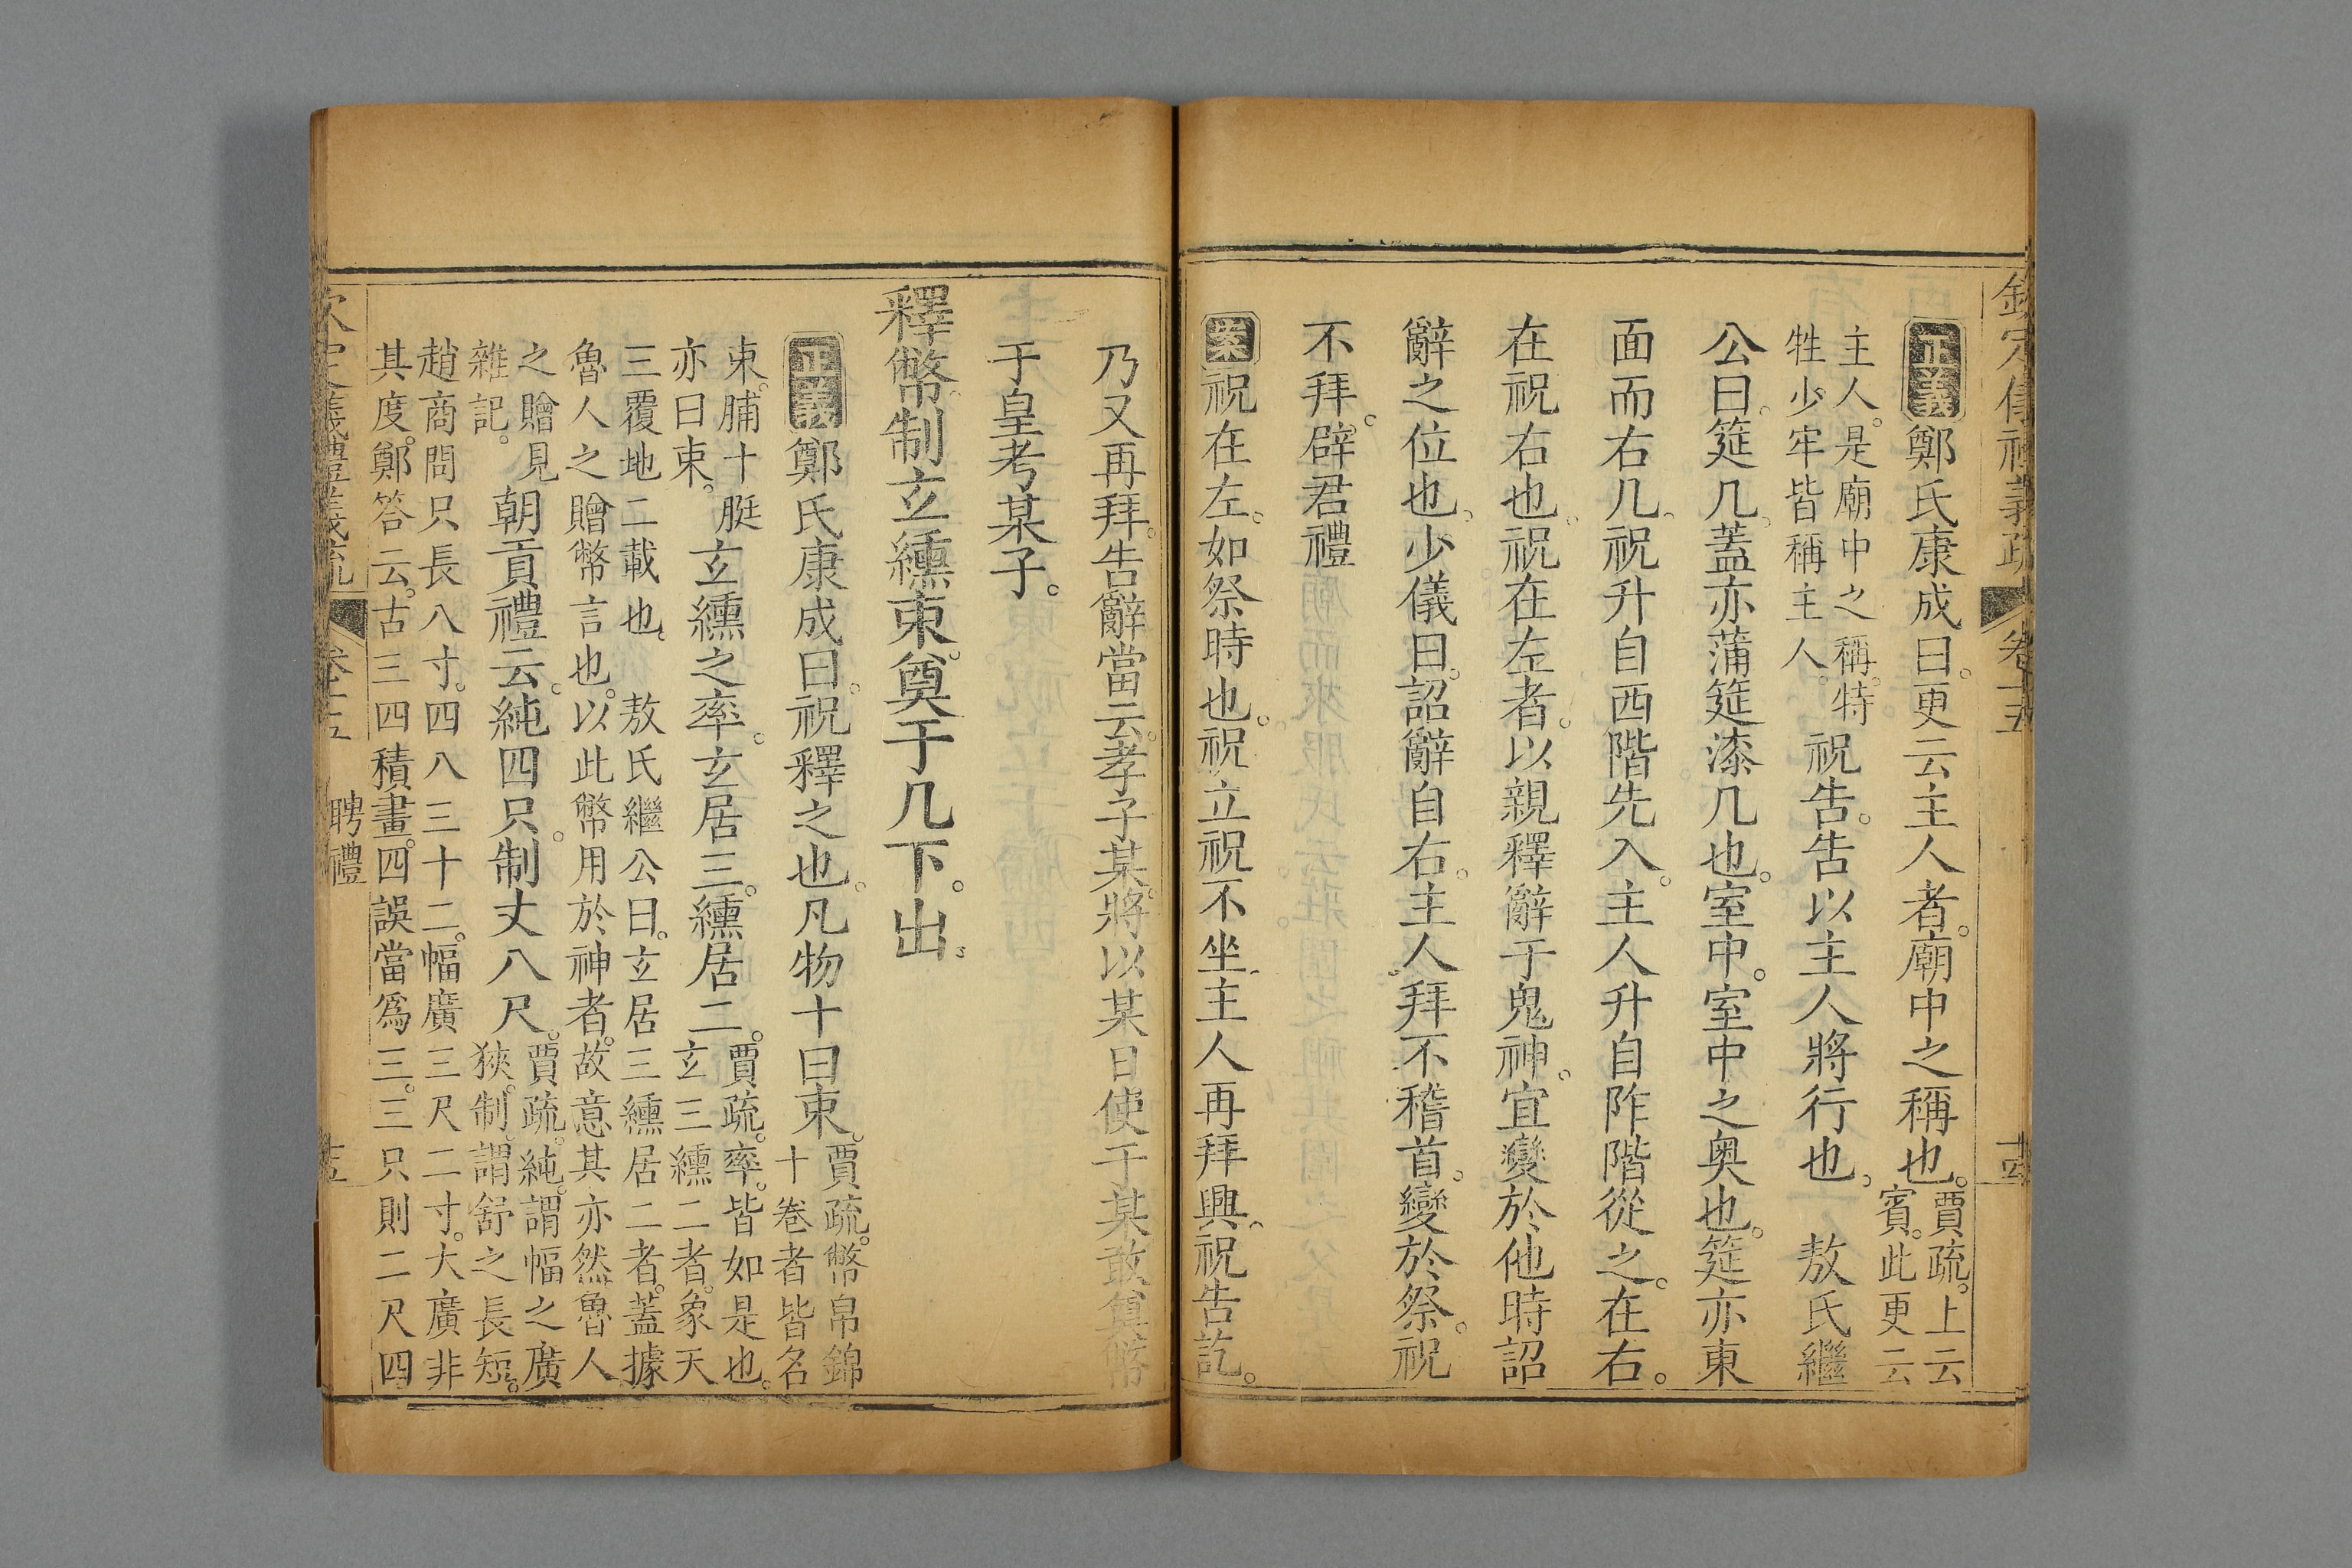 欽定儀禮義疏 卷十五 十四
正義 鄭氏康成曰。更云主人者。廟中之稱也。賈疏。上云
賓。此更云
主人。是廟中之稱。特
牲少牢皆稱主人。
祝告。告以主人將行也。 敖氏繼
公曰。筵几。蓋亦蒲筵漆几也。室中。室中之奧也。筵亦東
面而右几。祝升自西階先入。主人升自阼階從之。在右。
在祝右也。祝在左者。以親釋辭于鬼神。宜變於他時詔
辭之位也。少儀曰。詔辭自右。主人拜不稽首。變於祭。祝
不拜。辟君禮
案 祝在左。如祭時也。祝立祝不坐。主人再拜興。祝告訖。
乃又再拜。告辭當云。孝子某。將以某日使于某敢奠幣
于皇考某子。
釋幣。制玄纁束。奠于几下。出。
正義 鄭氏康成曰。祝釋之也。凡物十曰束。賈疏。幣帛錦
十卷者皆名
束。脯十脡
亦曰束。
玄纁之率。玄居三。纁居二。賈疏。率。皆如是也。
玄三纁二者。象天
三覆地二載也。 敖氏繼公曰。玄居三纁居二者。蓋據
魯人之贈幣言也。以此幣用於神者。故意其亦然魯人
之贈見
雜記。
朝貢禮云。純四只。制丈八尺。賈疏。純。謂幅之廣
狹。制。謂舒之長短。
趙商問只長八寸。四八三十二。幅廣三尺二寸。大廣非
其度。鄭答云。古三四積畫。四誤當爲三。三只則二尺四
欽定儀禮義疏 卷十五 聘禮 十五